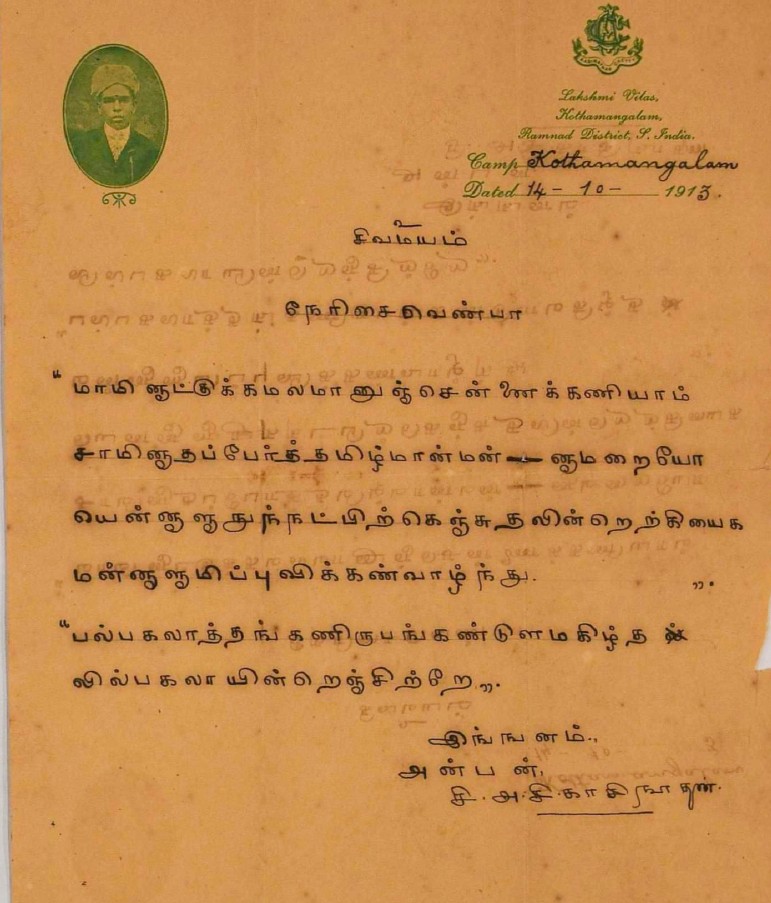 Lakshmi Vilas,
Kothamangalam,
Ramnad District, S. India.
Camp Kothamangalam
Dated 14-10-1913.
சிவமயம்
நேரிசைவெண்பா
“மாமினாட்டுக்கமலமானுஞ்சென்னைக்கணியாம்
சாமினாதப்பேர்த்தமிழ்மான்மன் னுமறையோ
யென்னாளுநுந்நட்பிற்கெஞ்சுதலின்றெற்கியைக
மன்னாளுமிப்புவிக்கண்வாழ்ந்து. ”.
“பல்பகலாத்தங்கணிருபங்கண்டுளமகிழ்த
லில்பகலாயின்றெஞ்சிற்றே”.
இங்ஙனம்.,
அன்பன்,
சி. அ. சி. காசி